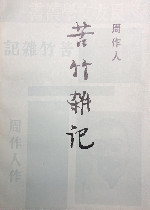 周作人
苦竹雜记
苦竹雜記
周作人作